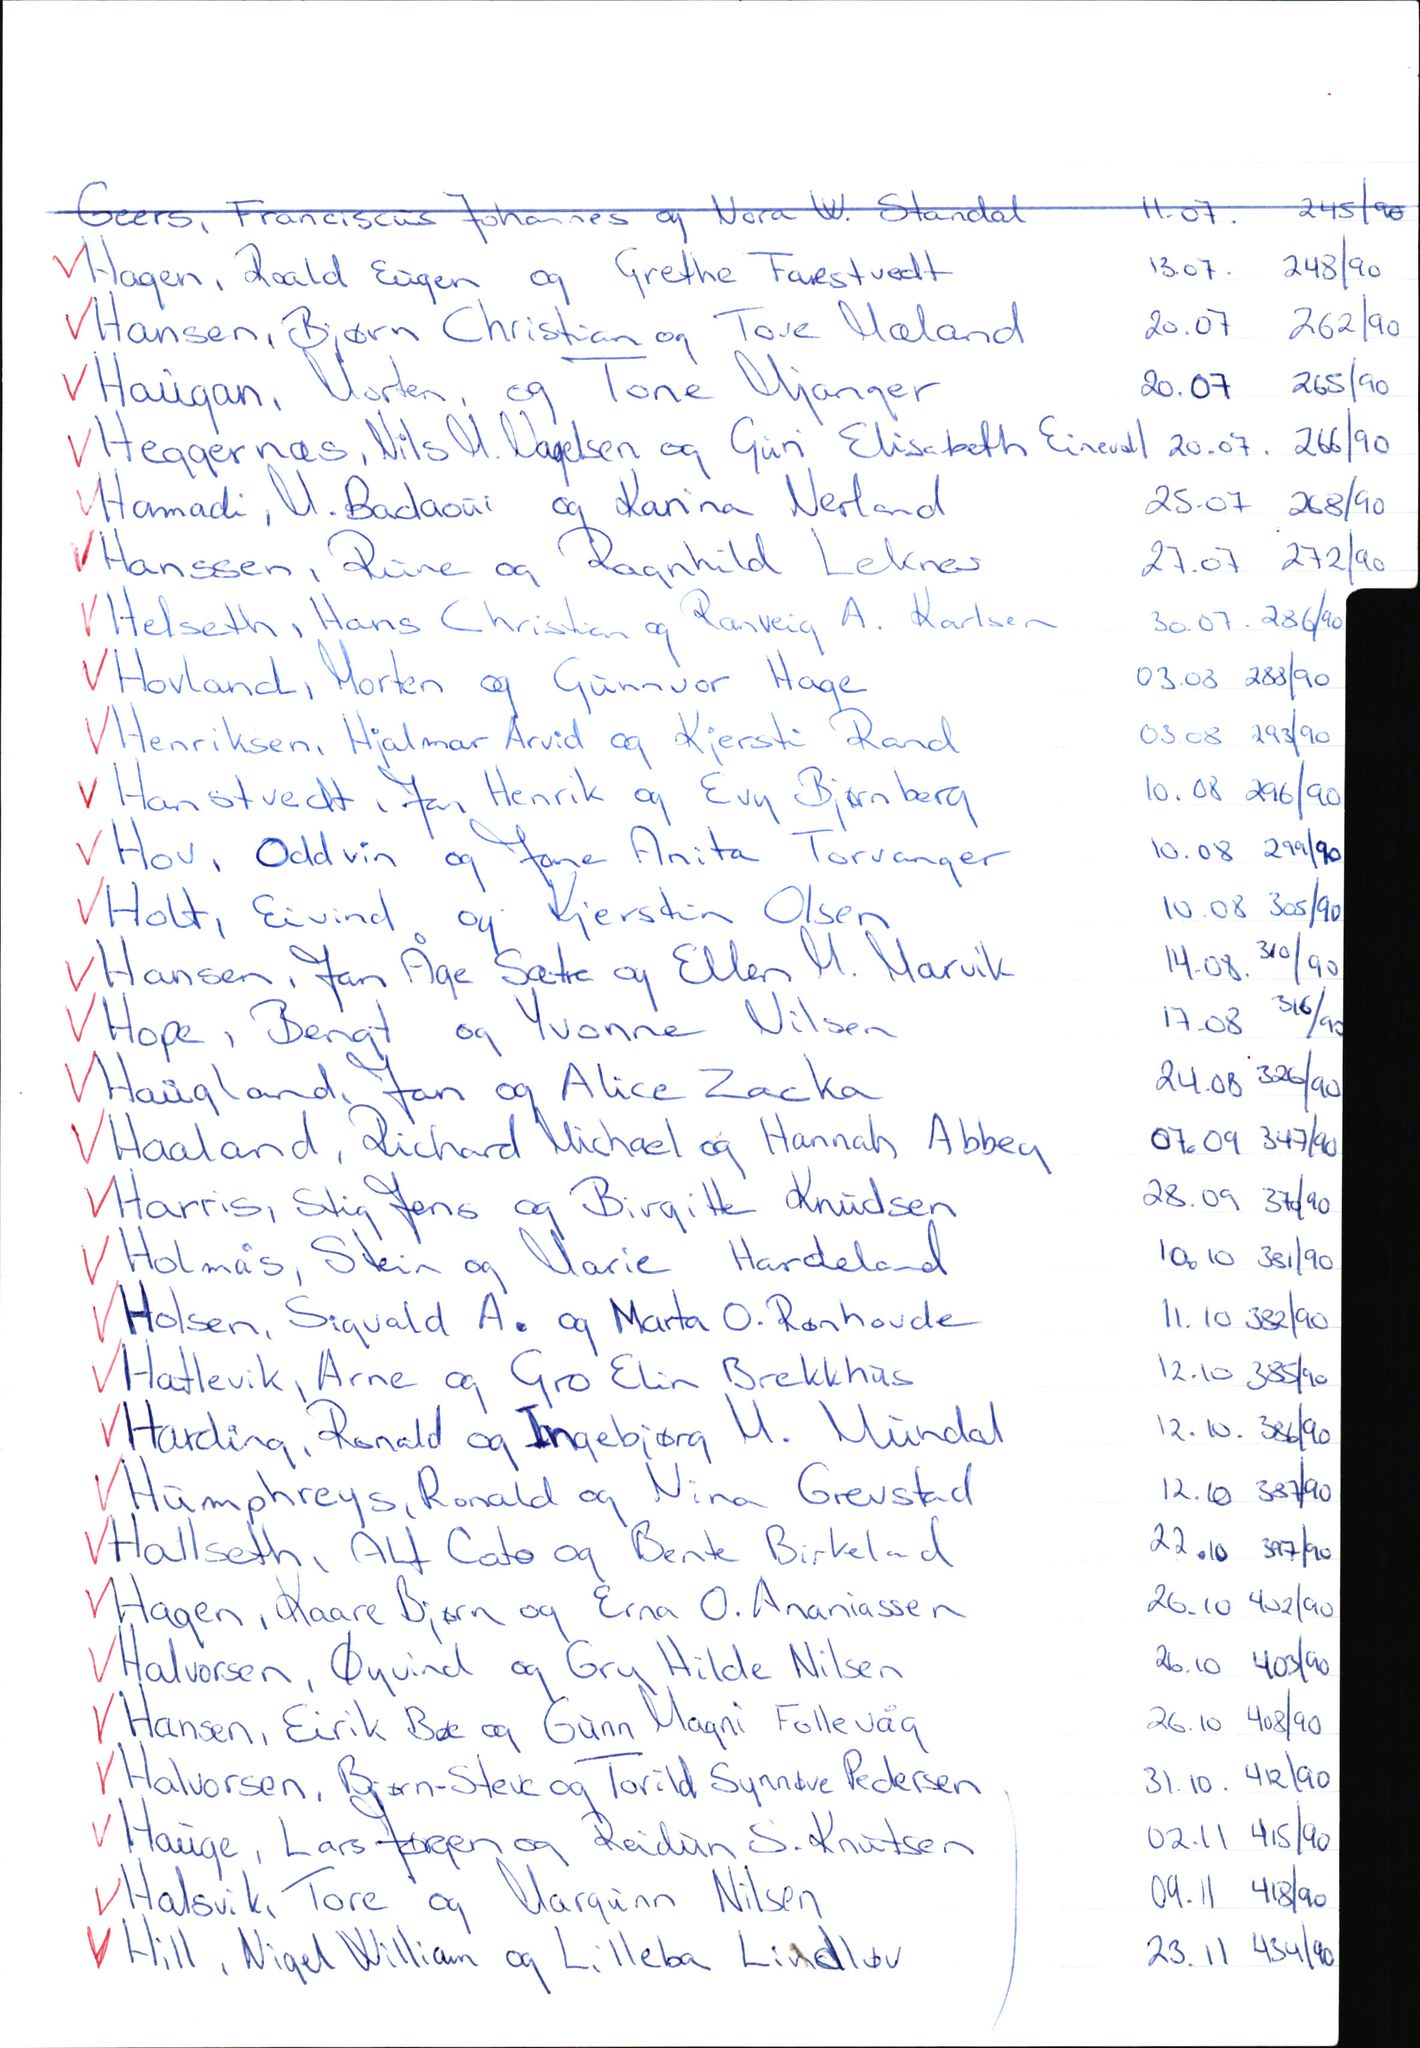 Geers, Franciscus Johannes og Nora W. Standal 11.07. 245/90
Hagen, Roald Eugen og Grethe Farestvedt 13.07. 248/90
Hansen, Bjørn Christian og Tove Mæland 20.07 262/90
Haugan, Morten, og Tone Mjanger 20.07 265/90
Heggernæs, Nils M. Magelsen og Guri Elisabeth Einevoll 20.07. 266/90
Hamadi, M. Badaoui og Karina Nerland 25.07 268/90
Hanssen, Rune og Ragnhild Leknes 27.07 272/90
Helseth, Hans Christian og Ranveig A. Karlsen 30.07. 286/90
Hovland, Morten og Gunnvor Hage 03.08 288/90
Henriksen, Hjalmar Arvid og Kjersti Rand 03.08 293/90
Hanstvedt, Jan Henrik og Evy Bjørnberg 10.08 296/90
Hov, Oddvin og Jane Anita Torvanger 10.08 299/90
Holt, Eivind og Kjerstin Olsen 10.08 305/90
Hansen, Jan Åge Sætre og Ellen M. Marvik 14.08. 310/90
Hope, Bengt og Yvonne Nilsen 17.08 316/90
Haugland, Jan og Alice Zacka 24.08 326/90
Haaland, Richard Michael og Hannah Abbey 07.09 347/90
Harris, Stig Jens og Birgitte Knudsen 28.09 90
Holmås, Stein og Marie Hardeland 10.10 381/90
Holsen, Sigvald A. og Marta O. Rønhovde 11.10 382/90
Hatlevik, Arne og Gro Elin Brekkhus 12.10 385/90
Harding, Ronald og Ingebjørg M. Mundal 12.10. 386/90
Humphreys, Ronald og Nina Grevstad 12.10 387/90
Hallseth, Alf Cato og Bente Birkeland 22.10 397/90
Hagen, Kaare Bjørn og Erna O. Ananiassen 26.10 402/90
Halvorsen, Øyvind og Gry Hilde Nilsen 26.10 403/90
Hansen, Eirik Bø og Gunn Magni Follevåg 26.10 408/90
Halvorsen, Bjørn-Steve og Torild Synnøve Pedersen 31.10. 412/90
Hauge, Lars Jørgen og Reidun S. Knutsen 02.11 415/90
Halsvik, Tore og Margunn Nilsen 09.11 418/90
Hill, Nigel William og Lilleba Lindløv 23.11 434/90